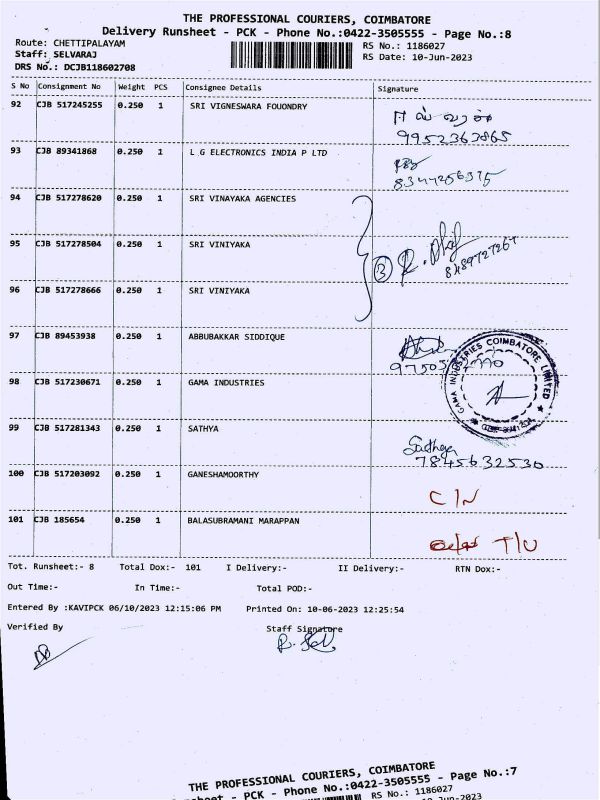 THE PROFESSIONAL COURIERS, COIMBATORE
Delivery Runsheet - PCK - Phone No.:0422-3505555 - Page No.:8
Route: CHETTIPALAYAM
Staff: SELVARAJ
DRS No.: DCJB118602708
RS No.: 1186027
RS Date: 10-Jun-2023
S No Consignment No Weight PCS Consignee Details Signature
92 CJB 517245255 0.250 1 SRI VIGNESWARA FOUONDRY
ஈஸ்வரன்
9952362865
93 CJB 89341868 0.250 1 L G ELECTRONICS INDIA P LTD
8344256375
94 CJB 517278620 0.250 1 SRI VINAYAKA AGENCIES
95 CJB 517278504 0.250 1 SRI VINIYAKA
3
8489727267
96 CJB 517278666 0.250 1 SRI VINIYAKA
97 CJB 89453938 0.250 1 ABBUBAKKAR SIDDIQUE
98 CJB 517230671 0.250 1 GAMA INDUSTRIES
GAMA INDUSTRIES COIMBATORE LIMITED
99 CJB 517281343 0.250 1 SATHYA
Sathya
7845632530
100 CJB 517203092 0.250 1 GANESHAMOORTHY
C/N
101 CJB 185654 0.250 1 BALASUBRAMANI MARAPPAN
T/U
Tot. Runsheet:- 8 Total Dox:- 101 I Delivery:- II Delivery:- RTN Dox:-
Out Time:- In Time:- Total POD:-
Entered By :KAVIPCK 06/10/2023 12:15:06 PM Printed On: 10-06-2023 12:25:54
Verified By Staff Signature
THE PROFESSIONAL COURIERS, COIMBATORE
- PCK - Phone No.:0422-3505555 - Page No.:7
RS No.: 1186027